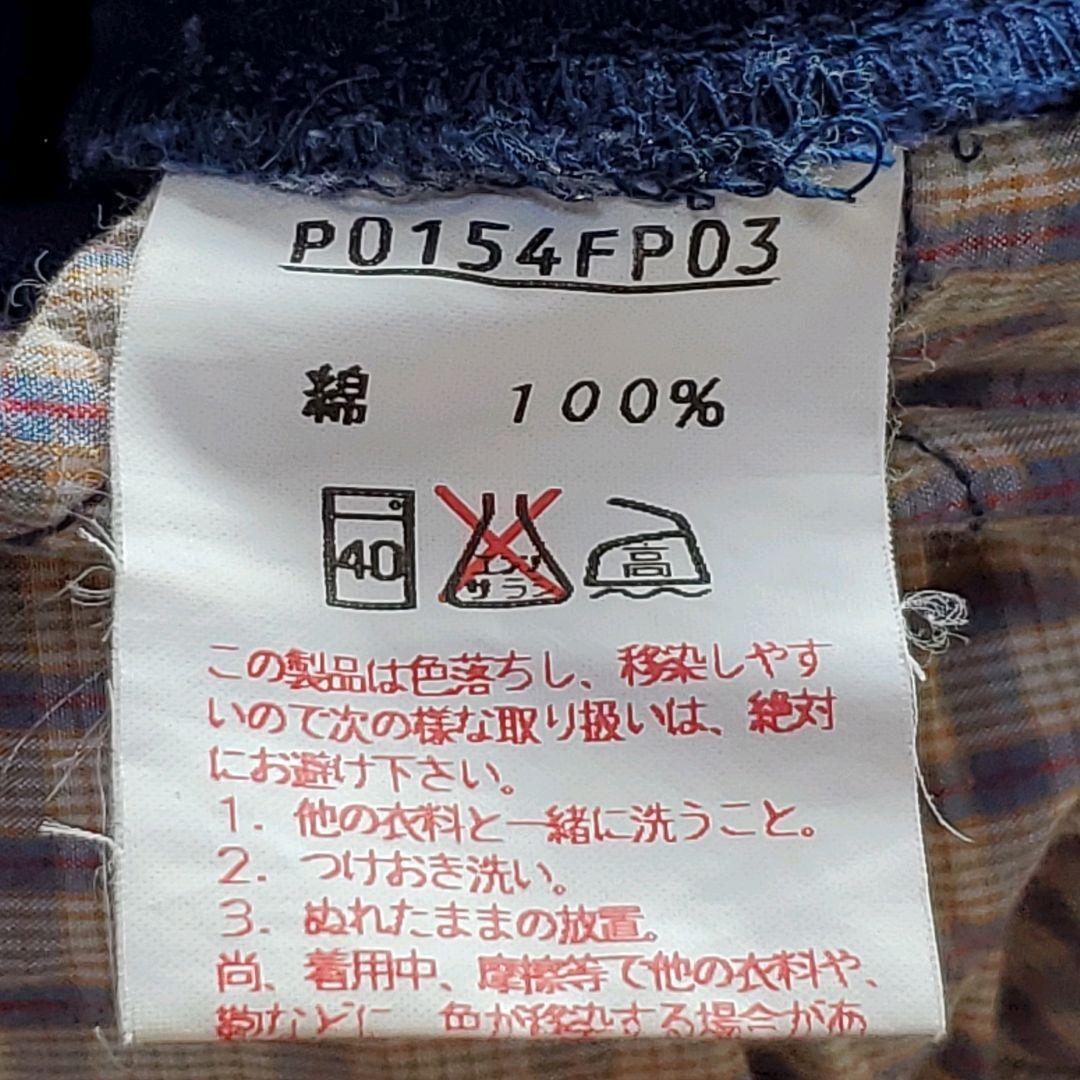 P0154FP03
綿 100%
40
エンソ
サラシ
高
この製品は色落ちし、移染しやす
いので次の様な取り扱いは、絶対
にお避け下さい。
1. 他の衣料と一緒に洗うこと。
2. つけおき洗い。
3. ぬれたままの放置。
尚、着用中、摩擦等で他の衣料や、
靴などに、色が移染する場合があ